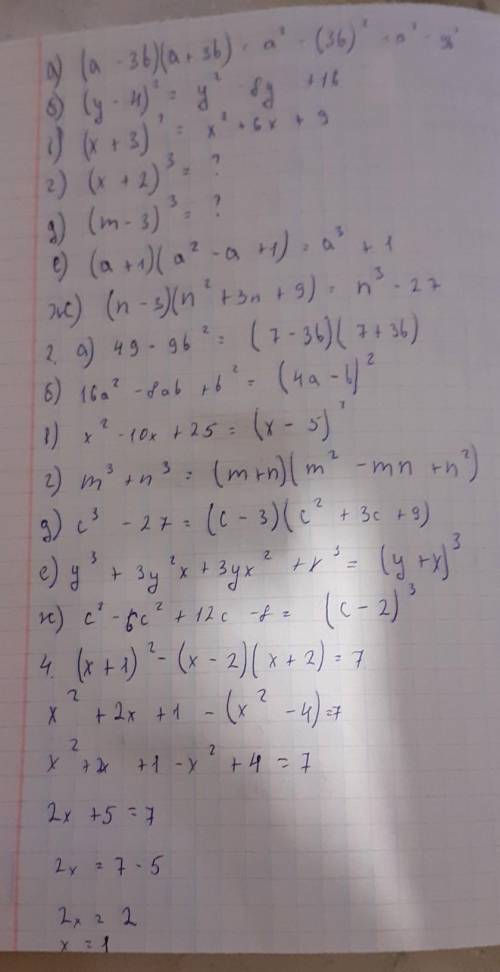 а) (a - 3b)(a + 3b) = a² - (3b)² = a² - 9b²
б) (y - 4)² = y² - 8y + 16
в) (x + 3)² = x² + 6x + 9
г) (x + 2)³ = ?
д) (m - 3)³ = ?
е) (a+1)(a² - a + 1) = a³ + 1
ж) (n - 3)(n² + 3n + 9) = n³ - 27
2. а) 49 - 9b² = (7 - 3b)(7 + 3b)
б) 16a² - 8ab + b² = (4a - b)²
в) x² - 10x + 25 = (x - 5)²
г) m³ + n³ = (m+n)(m² - mn + n²)
д) c³ - 27 = (c - 3)(c² + 3c + 9)
е) y³ + 3y²x + 3yx² + x³ = (y + x)³
ж) c³ - 6c² + 12c - 8 = (c - 2)³
4. (x + 1)² - (x - 2)(x + 2) = 7
x² + 2x + 1 - (x² - 4) = 7
x² + 2x + 1 - x² + 4 = 7
2x + 5 = 7
2x = 7 - 5
2x = 2
x = 1